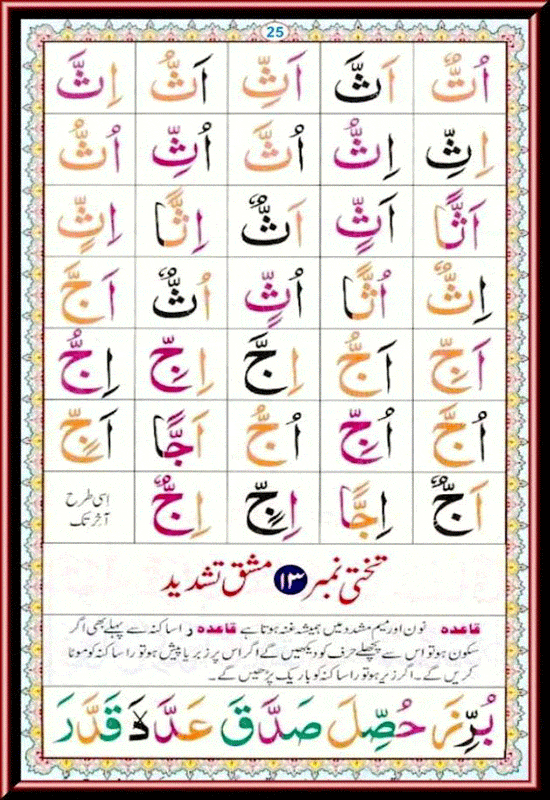 25
اُتٌّ اَثَّ اَثِّ اَثُّ اِثَّ
اِثِّ اِثُّ اُثَّ اُثِّ اُثُّ
اَثًّا اَثٍّ اَثٌّ اِثًّا اِثٍّ
اِثٌّ اُثًّا اُثٍّ اُثٌّ اَجَّ
اَجِّ اَجُّ اِجَّ اِجِّ اِجُّ
اُجَّ اُجِّ اُجُّ اَجًّا اَجٍّ
اَجٌّ اِجًّا اِجٍّ اِجٌّ اسی طرح
آخر تک
تختی نمبر ۱۳ مشق تشدید
قاعدہ نون اور میم مشدد میں ہمیشہ غنہ ہوتا ہے قاعدہ را ساکنہ سے پہلے بھی اگر
سکون ہو تو اس سے پچھلے حرف کو دیکھیں گے اگر اس پر زبر یا پیش ہو تو را ساکنہ کو موٹا
کریں گے۔ اگر زیر ہو تو را ساکنہ کو باریک پڑھیں گے۔
بُرِّزَ حُصِّلَ صَدَّقَ قَدَّرَ